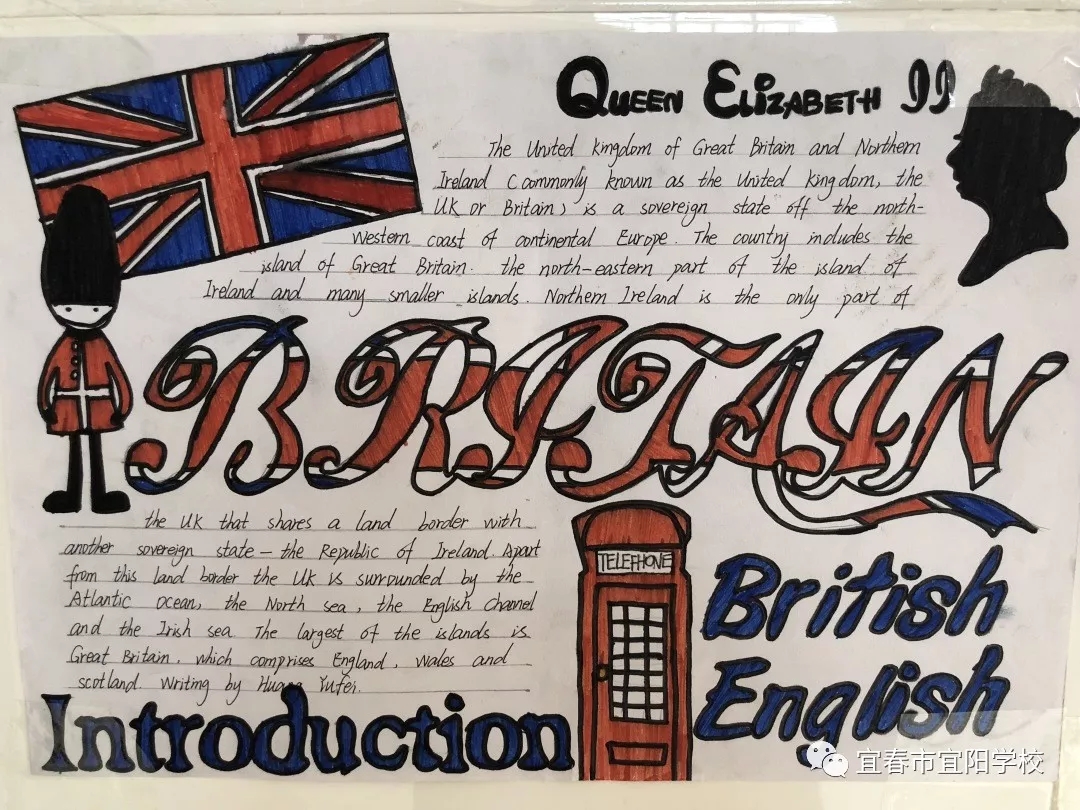 QUEEN ELIZABETH II
The United kingdom of Great Britain and Northern
Ireland (commonly known as the United kingdom, the
UK or Britain) is a sovereign state off the north-
western coast of continental Europe. The country includes the
island of Great Britain. the north-eastern part of the island of
Ireland and many smaller islands. Northern Ireland is the only part of
BRITAIN
the UK that shares a land border with
another sovereign state — the Republic of Ireland. Apart
from this land border the UK is surrounded by the
Atlantic ocean, the North sea, the English Channel
and the Irish sea The largest of the islands is
Great Britain, which comprises England, Wales and
scotland. Writing by Huang Yufei.
Introduction
TELEFHONE
British
English
宜春市宜阳学校